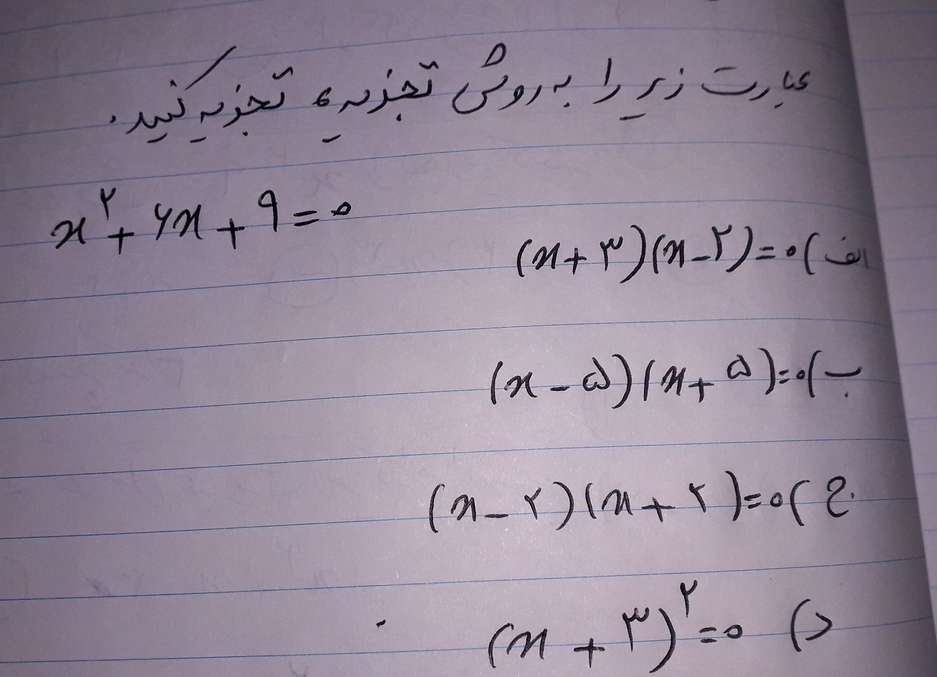 عبارت زیر را به روش تجزیه تجزیه کنید.
x² + ۶x + ۹ = ۰
الف) (x + ۳)(x - ۲) = ۰
ب) (x - ۵)(x + ۵) = ۰
ج) (x - ۲)(x + ۲) = ۰
د) (x + ۳)² = ۰